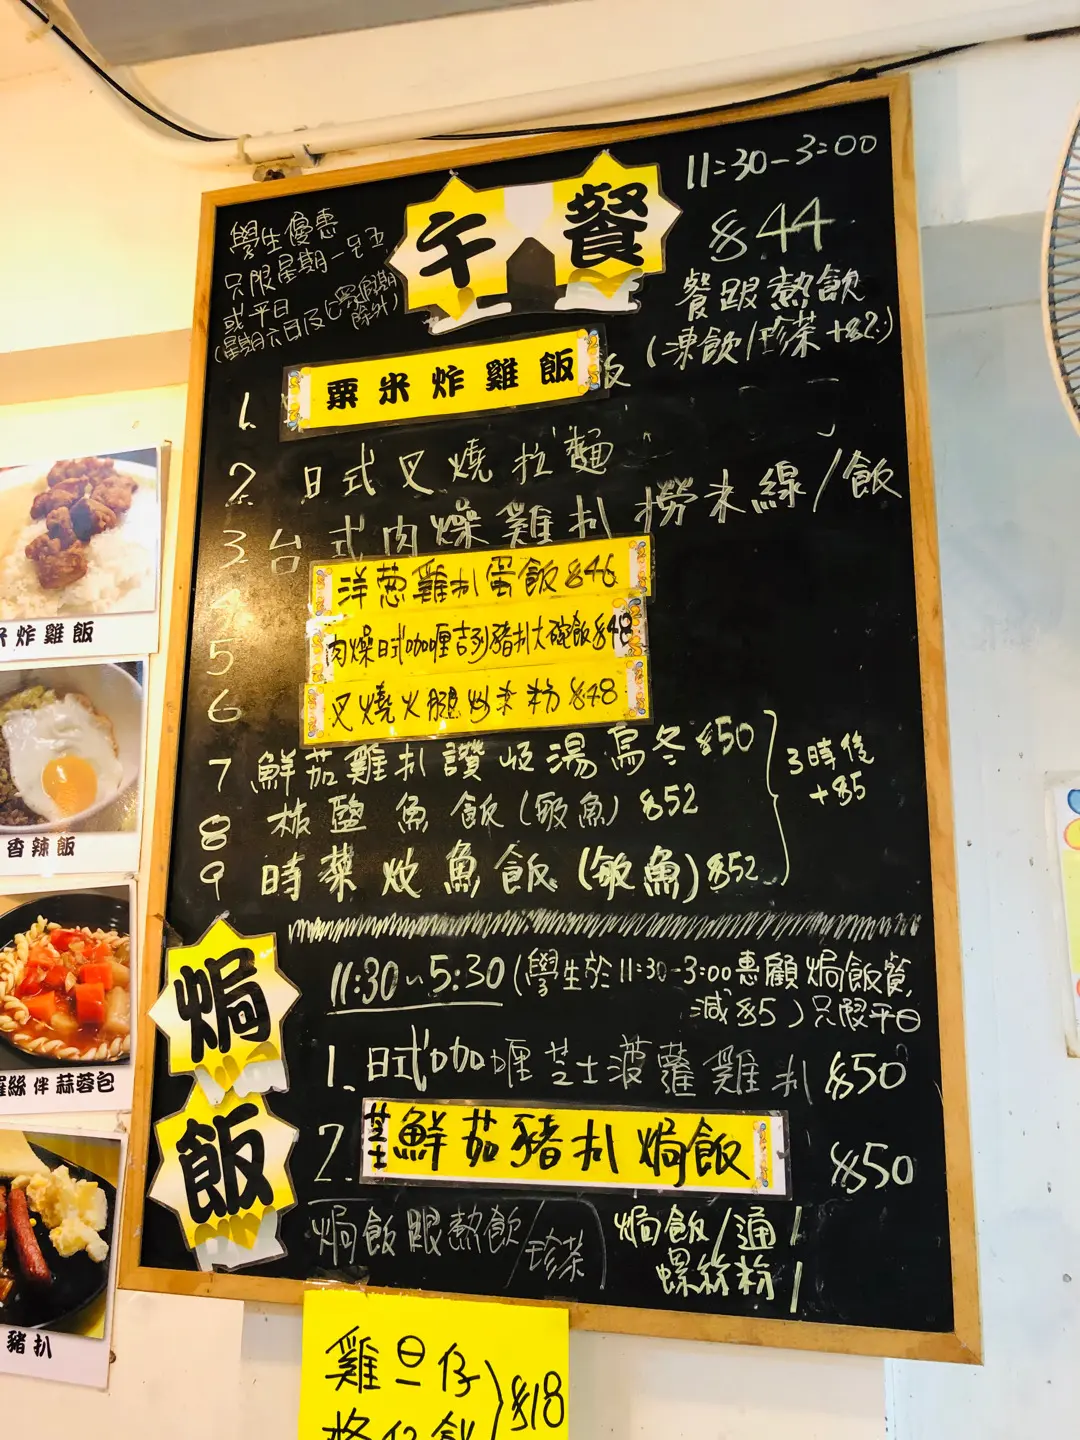 午餐
11:30-3:00
$44
餐跟熱飲
(凍飲/珍茶+$2)
學生優惠
只限星期一至五
或平日
(星期六日及公眾假期除外)
1. 粟米炸雞飯
2. 日式叉燒拉麵
3. 台式肉燥雞扒撈米線/飯
4 洋葱雞扒蛋飯$46
5 肉燥日式咖喱吉列豬扒大碗飯$48
6 叉燒火腿炒米粉$48
7 鮮茄雞扒讚岐湯烏冬$50
8 椒鹽魚飯(鯇魚)$52
9 時菜炆魚飯(鯇魚)$52
3時後
+$5
焗飯
11:30~5:30(學生於11:30-3:00惠顧焗飯餐,
減$5)只限平日
1. 日式咖喱芝士菠蘿雞扒 $50
2. 芝士鮮茄豬扒焗飯 $50
焗飯跟熱飲/珍茶
焗飯/通
螺絲粉
雞旦仔
$18
米炸雞飯
香辣飯
羅絲伴蒜蓉包
豬扒